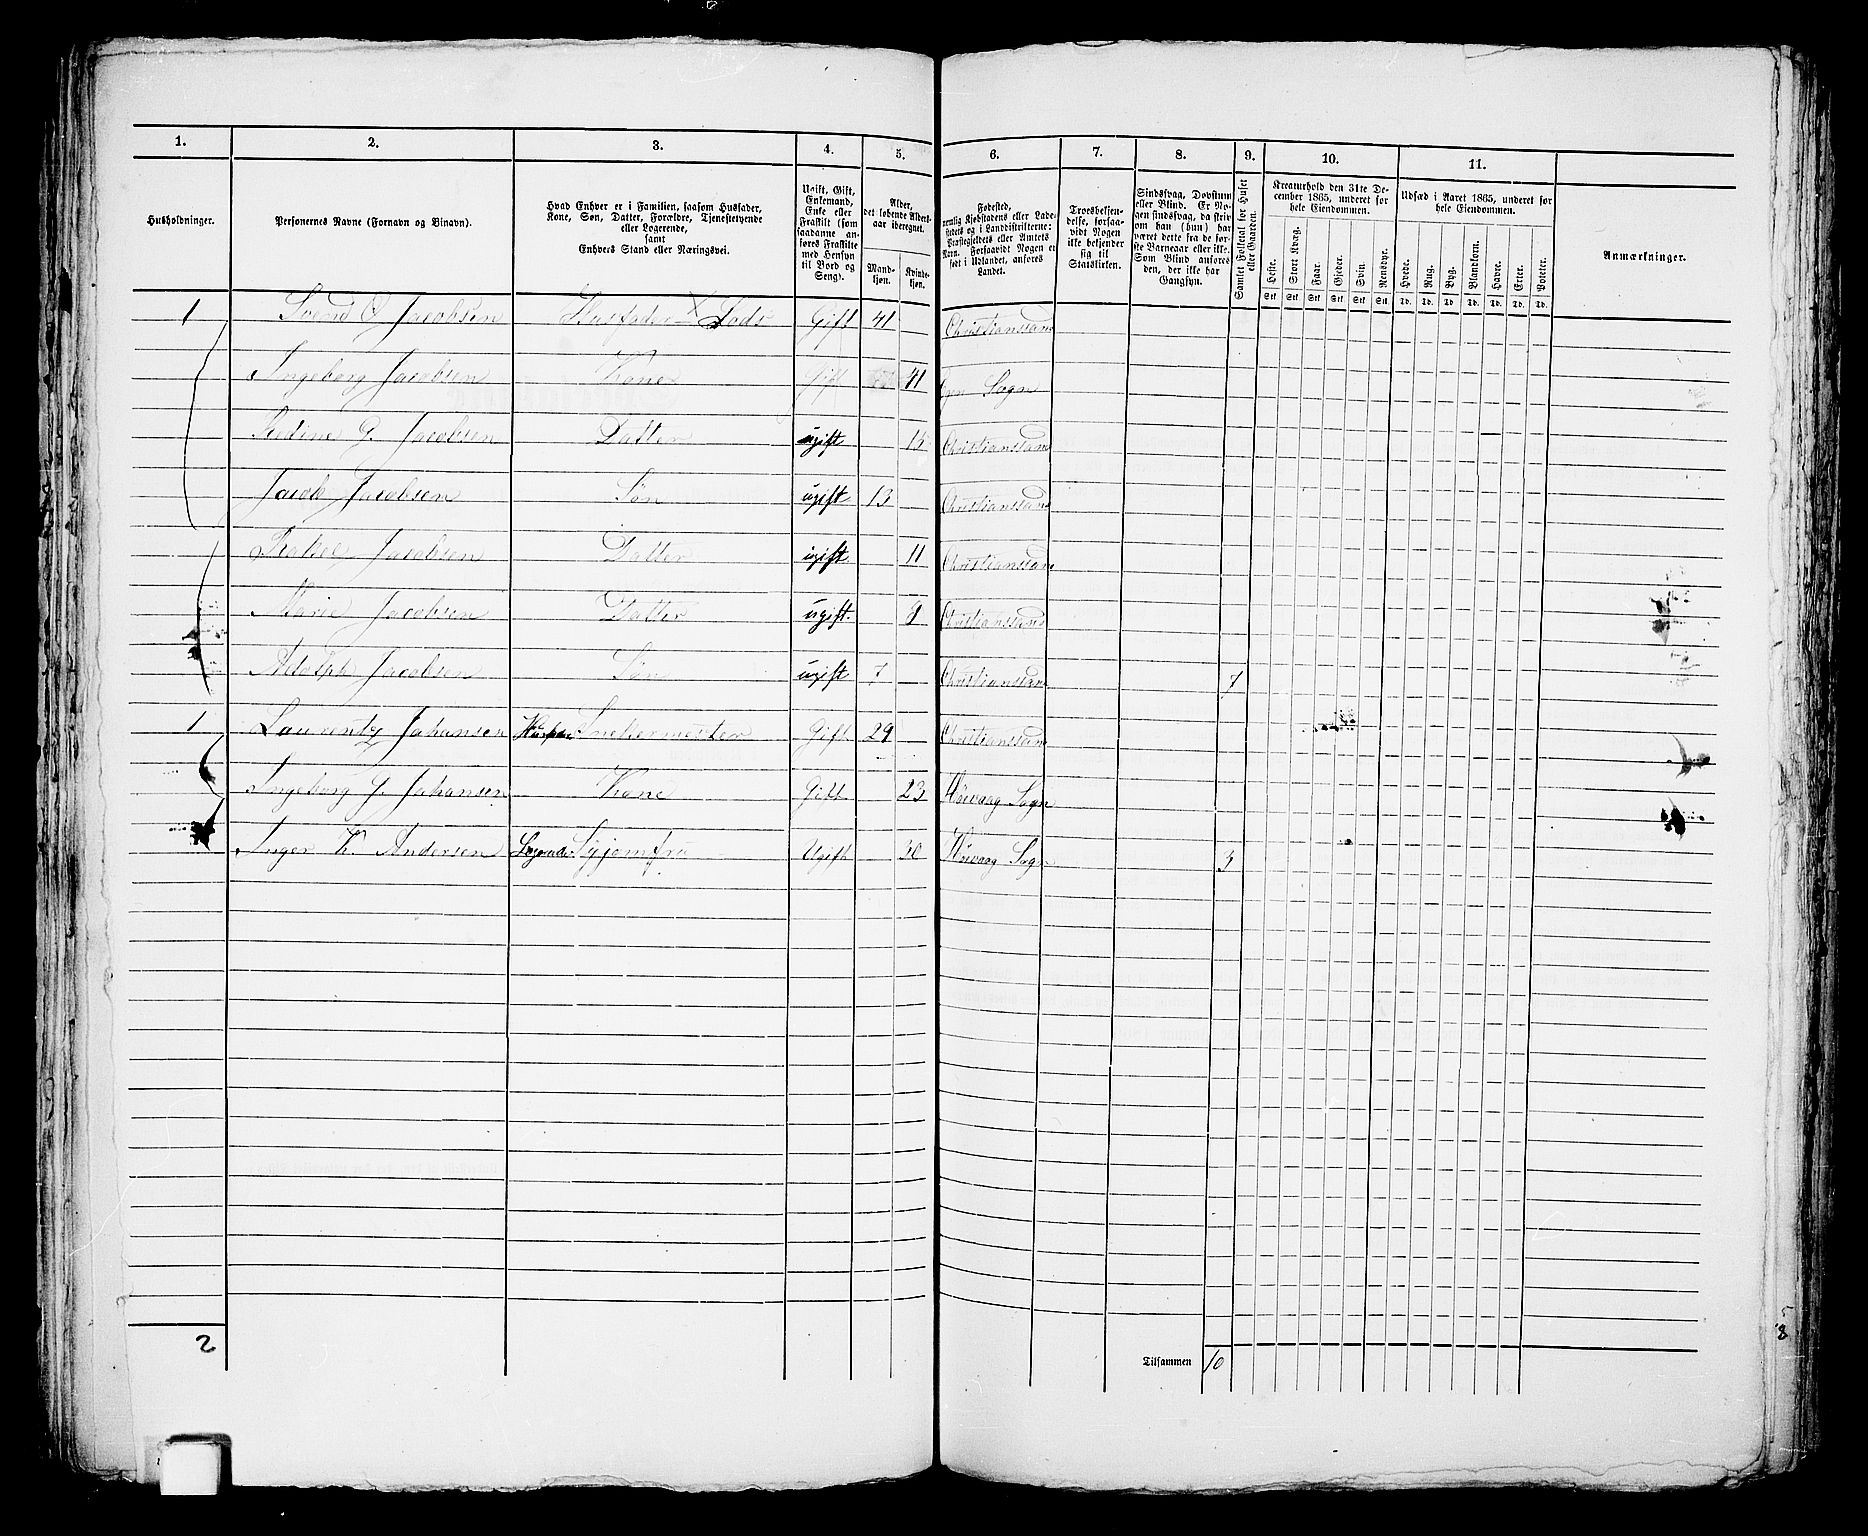 1. 2. 3. 4. 5. 6. 7. 8. 9. 10. 11.
Husholdninger.
Personernes Navne (Fornavn og Binavn).
Hvad Enhver er i Familien, saasom Husfader,
Kone, Søn, Datter, Forældre, Tjenestetyende
eller Logerende,
samt
Enhvers Stand eller Næringsvei.
Ugift, Gift,
Enkemand,
Enke eller
Fraskilt (som
saadanne an-
føres Fraskilte
med Hensyn
til Bord og
Seng).
Alder,
det løbende Alders-
aar iberegnet.
Mand-
kjøn.
Kvinde-
kjøn.
Fødested,
nemlig Kjøbstadens eller Lade-
stedets og i Landdistrikterne:
Præstegjeldets eller Amtets
Navn. Forsaavidt Nogen er
født i Udlandet, anføres
Landet.
Troesbekjen-
delse, forsaa-
vidt Nogen
ikke bekjender
sig til
Statskirken.
Sindssvag, Døvstum
eller Blind. Er No-
gen sindssvag, da skriv
om han (hun) har
været dette fra de før-
ste Barneaar eller ikke.
Som Blind anføres
den, der ikke har
Gangsyn.
Samlet Folketal for Huset
eller Gaarden.
Kreaturhold den 31te De-
cember 1865, underet for
hele Eiendommen.
Heste. Stort Kvæg. Faar. Gjeder. Svin. Rensdyr.
Stk. Stk. Stk. Stk. Stk. Stk.
Udsæd i Aaret 1865, underet for
hele Eiendommen.
Hvede. Rug. Byg. Blandkorn. Havre. Erter. Poteter.
Td. Td. Td. Td. Td. Td. Td.
Anmærkninger.
1 Svend O Jacobsen Husfader Lods Gift 41 Christianssand
Ingeborg Jacobsen Kone Gift 41 Sogn
G. Jacobsen Datter ugift 15 Christianssand
Jacob Jacobsen Søn ugift 13 Christianssand
Rakel Jacobsen Datter ugift 11 Christianssand
Marie Jacobsen Datter ugift. 9 Christianssand
Adolph Jacobsen Søn ugift 7 Christianssand 7
1 Laurentz Johansen Husfader Snekermester Gift 29 Christianssand
Ingeborg J. Johansen Kone Gift 23 Høivaag Sogn
Inger K. Andersen Logerende Syjomfru Ugift 30 Høivaag Sogn 3
2
Tilsammen 10